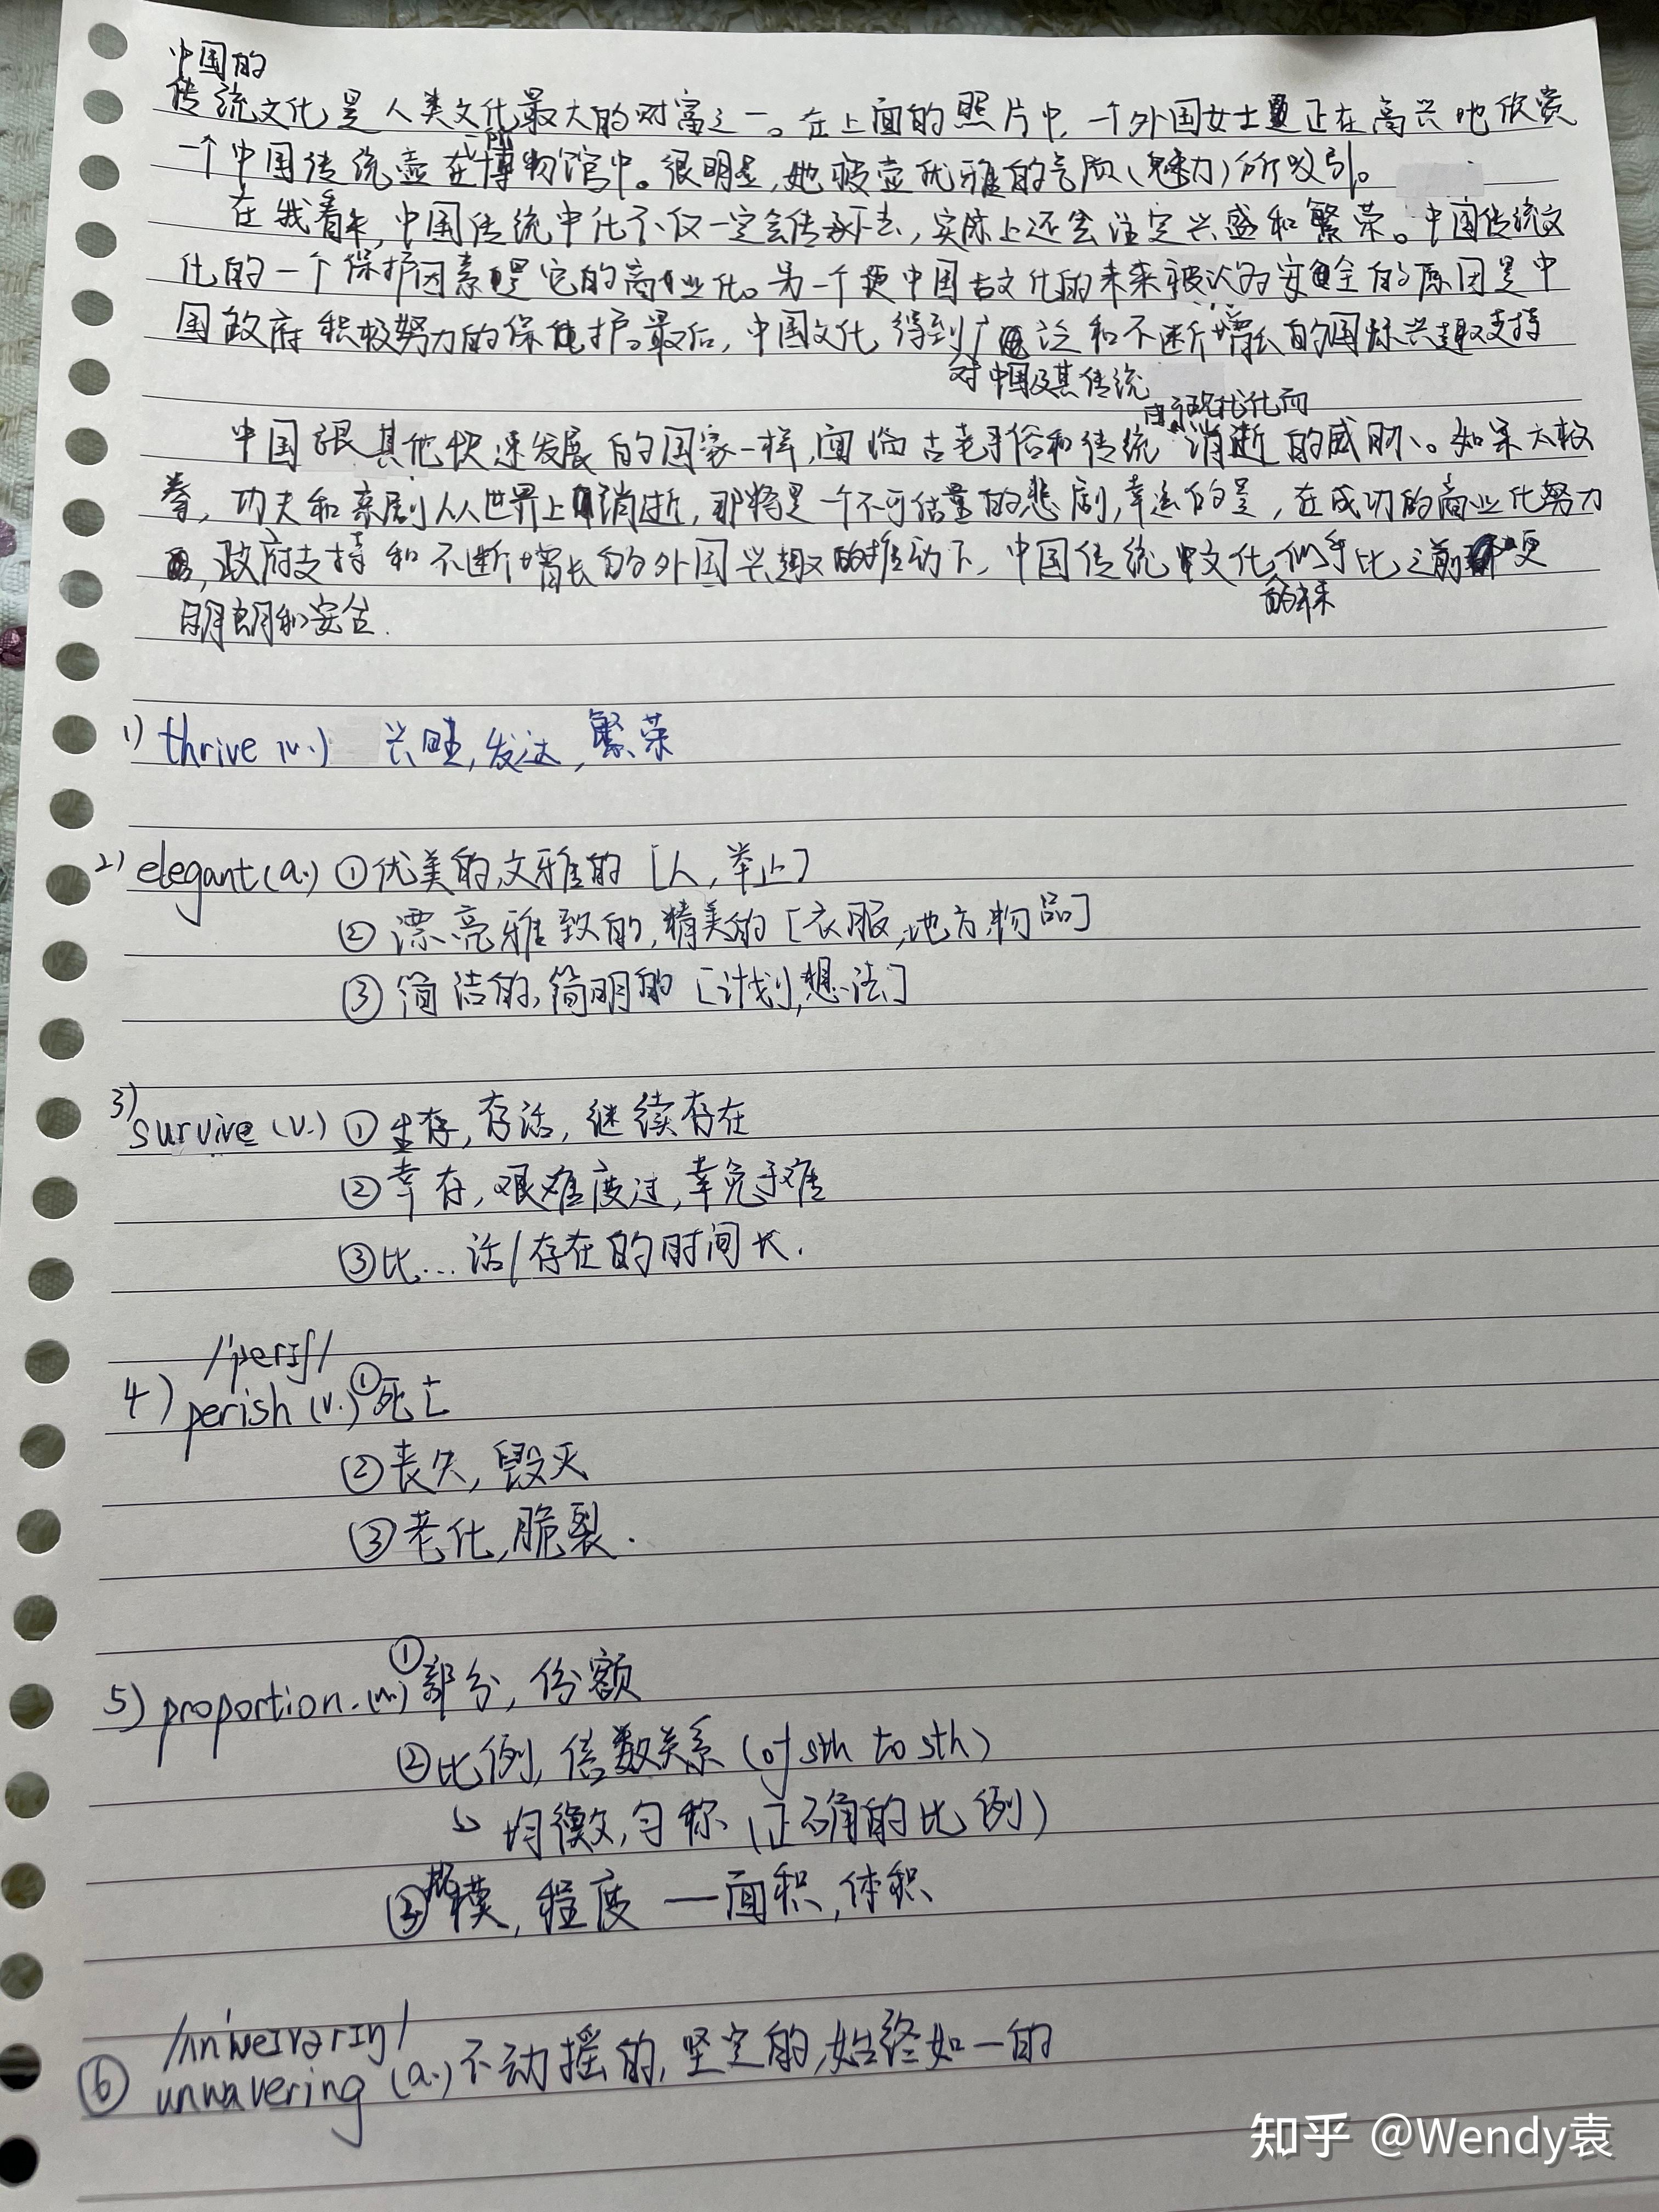 中国的
传统文化是人类文化最大的财富之一。在上面的照片中,一个外国女士正在高兴地欣赏
一所
一个中国传统壶在博物馆中。很明显,她被壶优雅的气质(魅力)所吸引。
在我看来,中国传统中化不仅一定会传承下去,实际上还会注定兴盛和繁荣。中国传统文
化的一个保护因素是它的商业化。另一个使中国古文化的未来被认为安全的原因是中
国政府积极努力的保护。最后,中国文化得到广泛和不断增长的国际兴趣支持
对中国及其传统
由于现代化而
中国跟其他快速发展的国家一样,面临古老习俗和传统消逝的威胁。如果太极
拳,功夫和京剧从世界上消逝,那将是一个不可估量的悲剧,幸运的是,在成功的商业化努力
,政府支持和不断增长的外国兴趣的推动下,中国传统文化似乎比之前更
的未来
明朗和安全.
1) thrive (v.) 兴旺,发达,繁荣
2) elegant (a.) ①优美的,文雅的 [人,举止]
②漂亮雅致的,精美的 [衣服,地方,物品]
③简洁的,简明的 [计划,想法]
3) survive (v.) ①生存,存活,继续存在
②幸存,艰难度过,幸免于难
③比…活/存在的时间长.
/'perɪʃ/
4) perish (v.) ①死亡
②丧失,毁灭
③老化,脆裂.
5) proportion.(n.) ①部分,份额
②比例,倍数关系 (of sth to sth)
↳ 均衡,匀称 (正确的比例)
③规模,程度 — 面积,体积
/ʌn'weɪvərɪŋ/
⑥ unwavering (a.) 不动摇的,坚定的,始终如一的
知乎 @Wendy袁